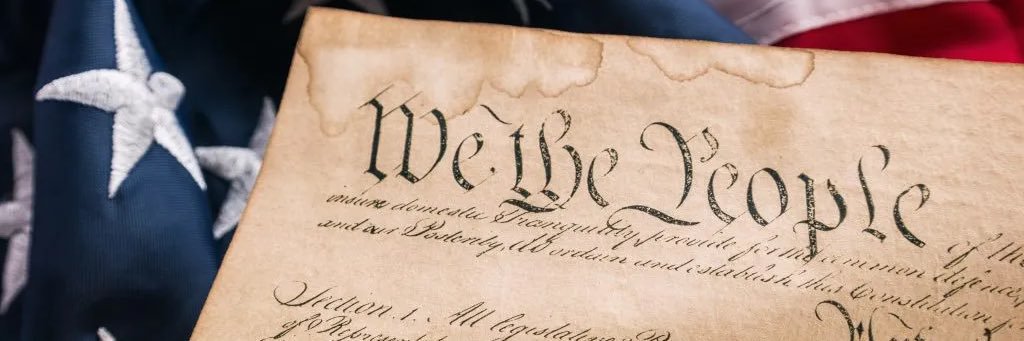 We the People of the
insure domestic Tranquility, provide for the common defence,
and our Posterity, do ordain and establish this Constitution
Section. 1. All legislative
of Represen